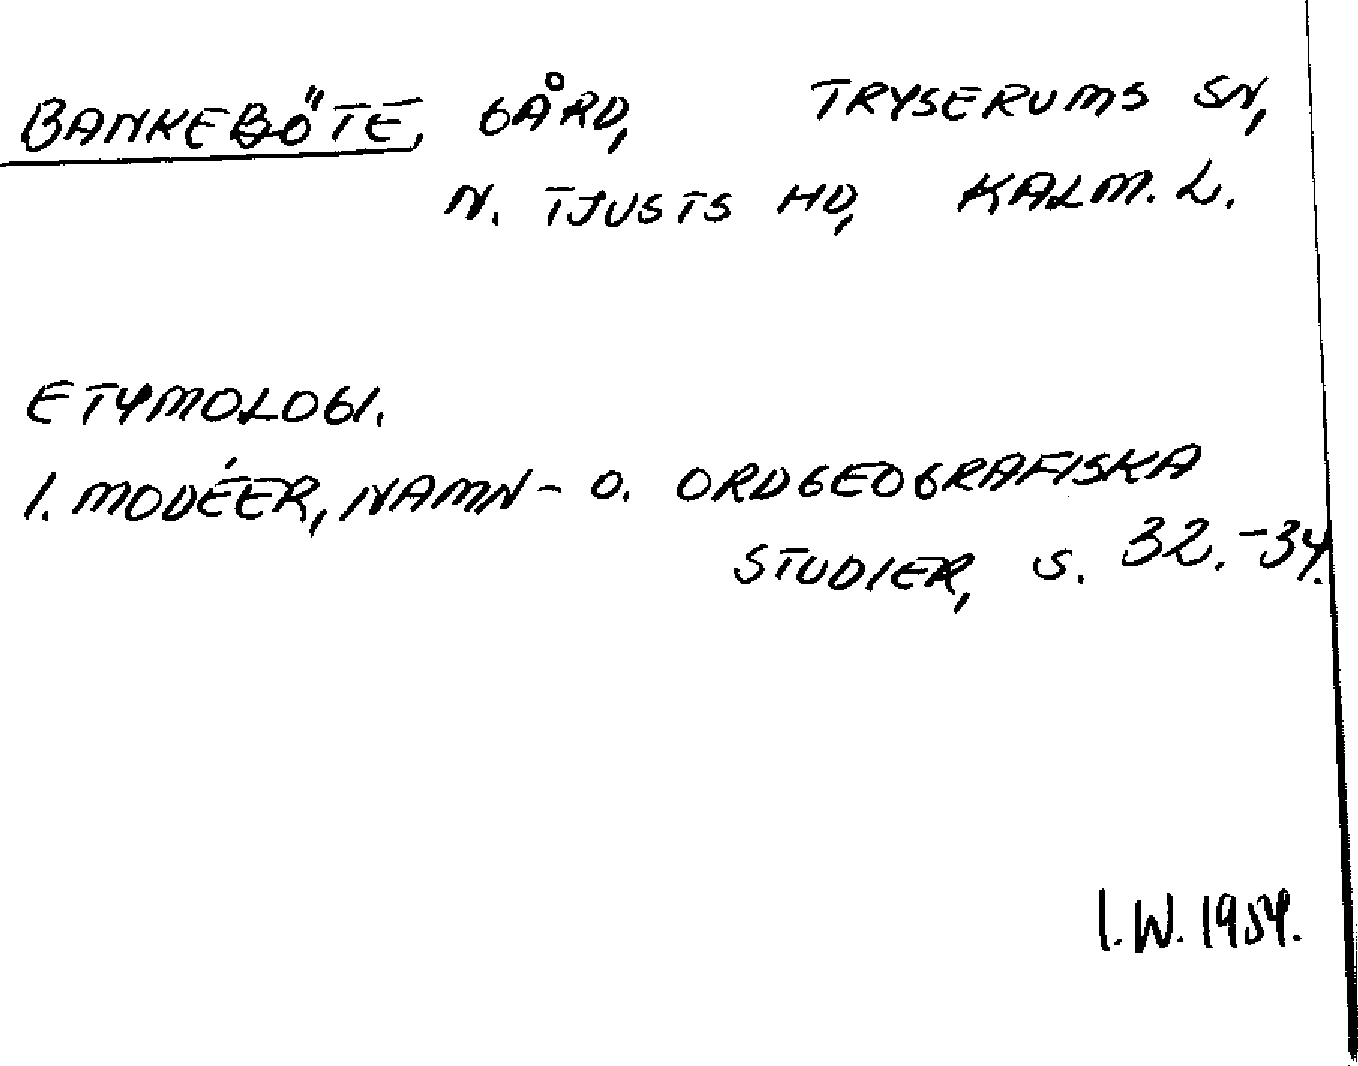 BANKEBÖTE, GÅRD, TRYSERUMS SN,
N. TJUSTS HD, KALM. L.
ETYMOLOGI.
I. MODÉER, NAMN- O. ORDGEOGRAFISKA
STUDIER, S. 32.-34.
I.W. 1954.